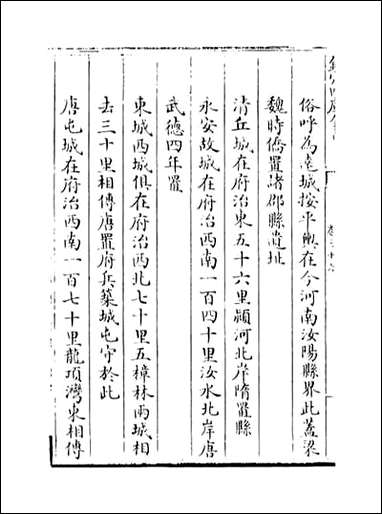 欽定四庫全書
俗呼為城按平輿在今河南汝陽縣界此蓋梁
魏時僑置諸郡縣遺址
清丘城在府治東五十六里潁河北岸隋置縣
永安故城在府治西南一百四十里汝水北岸唐
武德四年置
東城西城俱在府治西北七十里五樟林兩城相
去三十里相傳唐置府兵築城屯守於此
唐屯城在府治西南一百七十里龍項灣東相傳